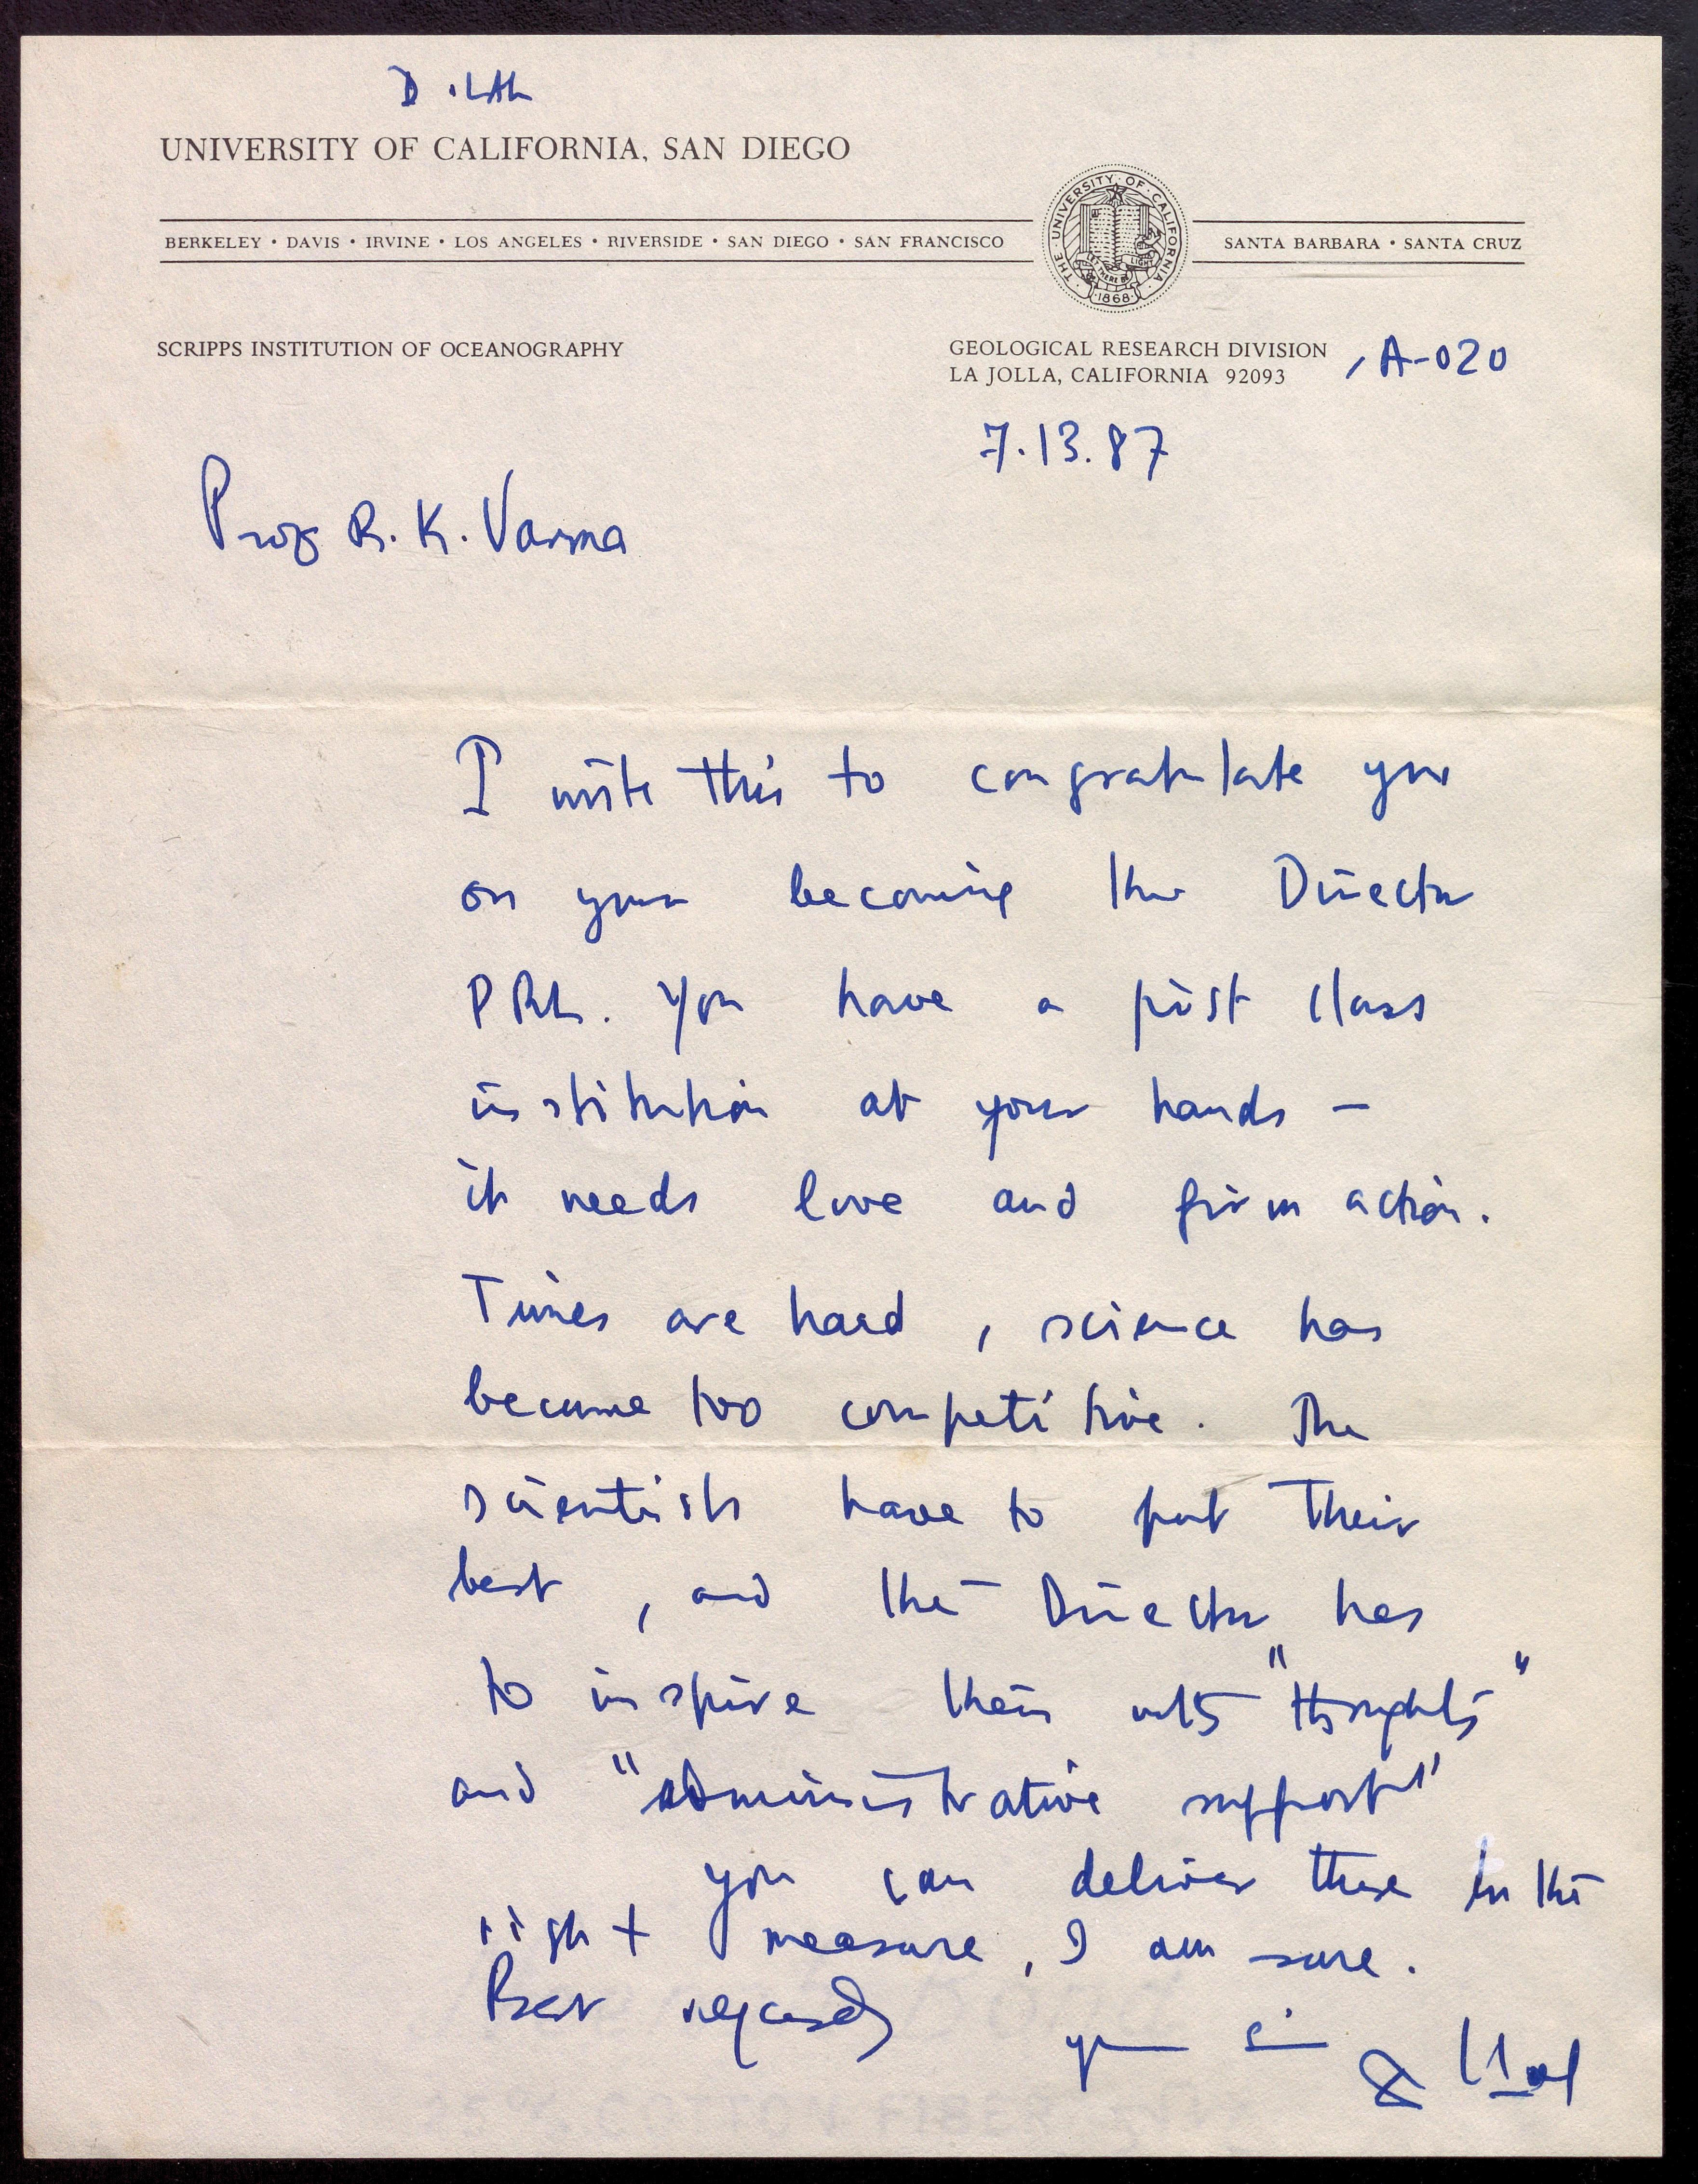 D. LAL
UNIVERSITY OF CALIFORNIA, SAN DIEGO
BERKELEY • DAVIS • IRVINE • LOS ANGELES • RIVERSIDE • SAN DIEGO • SAN FRANCISCO
SANTA BARBARA • SANTA CRUZ
THE • UNIVERSITY • OF • CALIFORNIA •
LET THERE BE LIGHT
• 1868 •
SCRIPPS INSTITUTION OF OCEANOGRAPHY
GEOLOGICAL RESEARCH DIVISION
LA JOLLA, CALIFORNIA 92093 , A-020
7.13.87
Prof R. K. Varma
I write this to congratulate you
on your becoming the Director
PRL. You have a first class
institution at your hands –
it needs love and firm action.
Times are hard, science has
become too competitive. The
scientists have to put their
best, and the Director has
to inspire them with "thoughts"
and "administrative support"
you can deliver these in the
right measure, I am sure.
Best regards
D. Lal